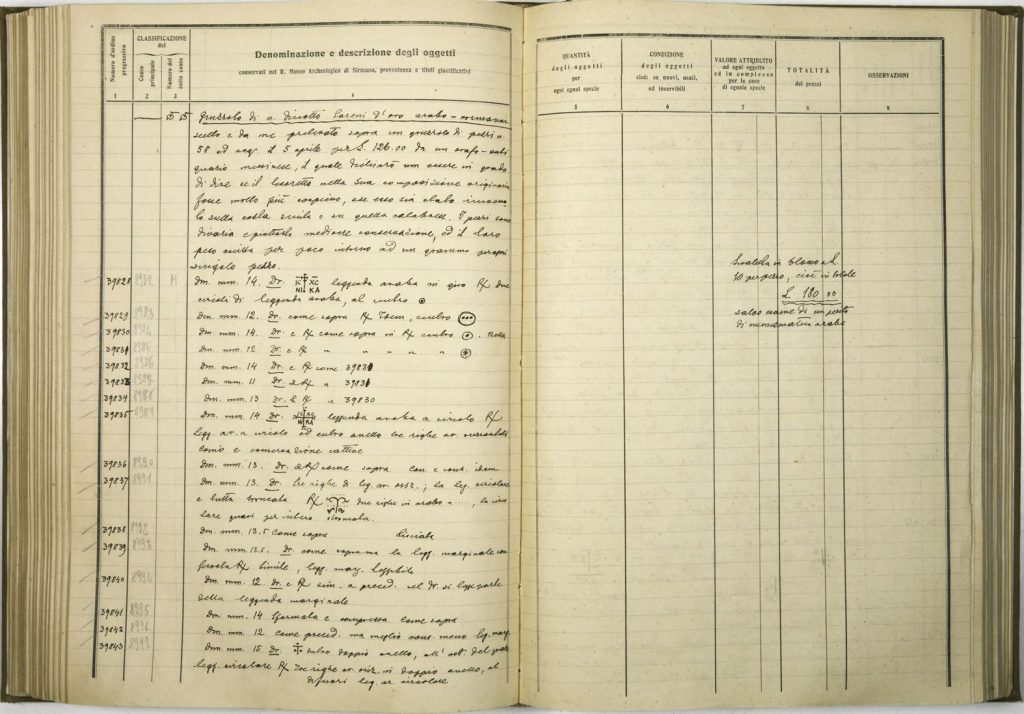 Numero d'ordine progressivo
CLASSIFICAZIONE del
Conto principale
Numero del sotto conto
Denominazione e descrizione degli oggetti
conservati nel R. Museo Archeologico di Siracusa, provenienza e titoli giustificativi
1 2 3 4
QUANTITÀ degli oggetti per ogni egual specie
CONDIZIONE degli oggetti cioè: se nuovi, usati, od inservibili
VALORE ATTRIBUITO ad ogni oggetto ed in complesso per le cose di eguale specie
TOTALITÀ dei prezzi
OSSERVAZIONI
5 6 7 8 9
Gruzzolo di n. diciotto Tareni d'oro arabo-normanni
scelto e da me prelevato sopra un gruzzolo di pezzi n.
58 ed acq. il 5 aprile per £. 126.00 da un orafo-anti
quario messinese, il quale dichiarò non essere in grado
di dire se il tesoretto nella sua composizione originaria
fosse molto più cospicuo, e se esso sia stato rinvenu
to sulla costa sicula o in quella calabrese. I pezzi sono
di varia e piuttosto mediocre conservazione, ed il loro
peso oscilla per poco intorno ad un grammo per ogni
singolo pezzo.
39828 8982 M Dm. mm. 14. Dr. IC XC NI KA leggenda araba in giro R/ due
circoli di leggenda araba, al centro
39829 8983 Dm. mm. 12. Dr. come sopra R/ Idem, centro
39830 Dm. mm. 14. Dr. e R/ come sopra in R/ centro
39831 8985 Dm. mm. 12 Dr. e R/ " " " " "
39832 8986 Dm. mm. 14 Dr. e R/ come 39831
39833 8987 Dm. mm. 11 Dr. e R/ " 39831
39834 8988 Dm. mm. 13 Dr. e R/ " 39830
39835 8989 Dm. mm. 14 Dr. IC XC NI KA leggenda araba a circolo R/
legg. ar. a circolo ed entro anello tre righe ar.
conio e conservazione cattive
39836 8990 Dm. mm. 13. Dr. e R/ come sopra Con. e cons. idem
39837 8991 Dm. mm. 13. Dr. Tre righe di leg. ar. oriz.; la leg. circolare
è tutta troncata R/ due righe in arabo a ....., la circo
lare quasi per intero troncata.
39838 8992 Dm. mm. 13.5 Come sopra lisciata
39839 8993 Dm. mm. 13.5. Dr. come sopra ma la legg. marginale con
servata R/ Simile, legg. marg. leggibile
39840 8994 Dm. mm. 12. Dr. e R/ sim. a preced. nel dr. si legge parte
della leggenda marginale
39841 8995 Dm. mm. 14 Sformata e come sopra
39842 8996 Dm. mm. 12 come preced. ma meglio cons. meno leg. marg.
39843 8997 Dm. mm. 15 Dr. entro doppio anello, all' est. del quale
legg. circolare R/ tre righe ar. oriz. in doppio anello, al
difuori leg. ar. circolare
in blocco a £
10 per pezzo, cioè in totale
£. 180 00
salvo esame di un perito
di numismatica araba